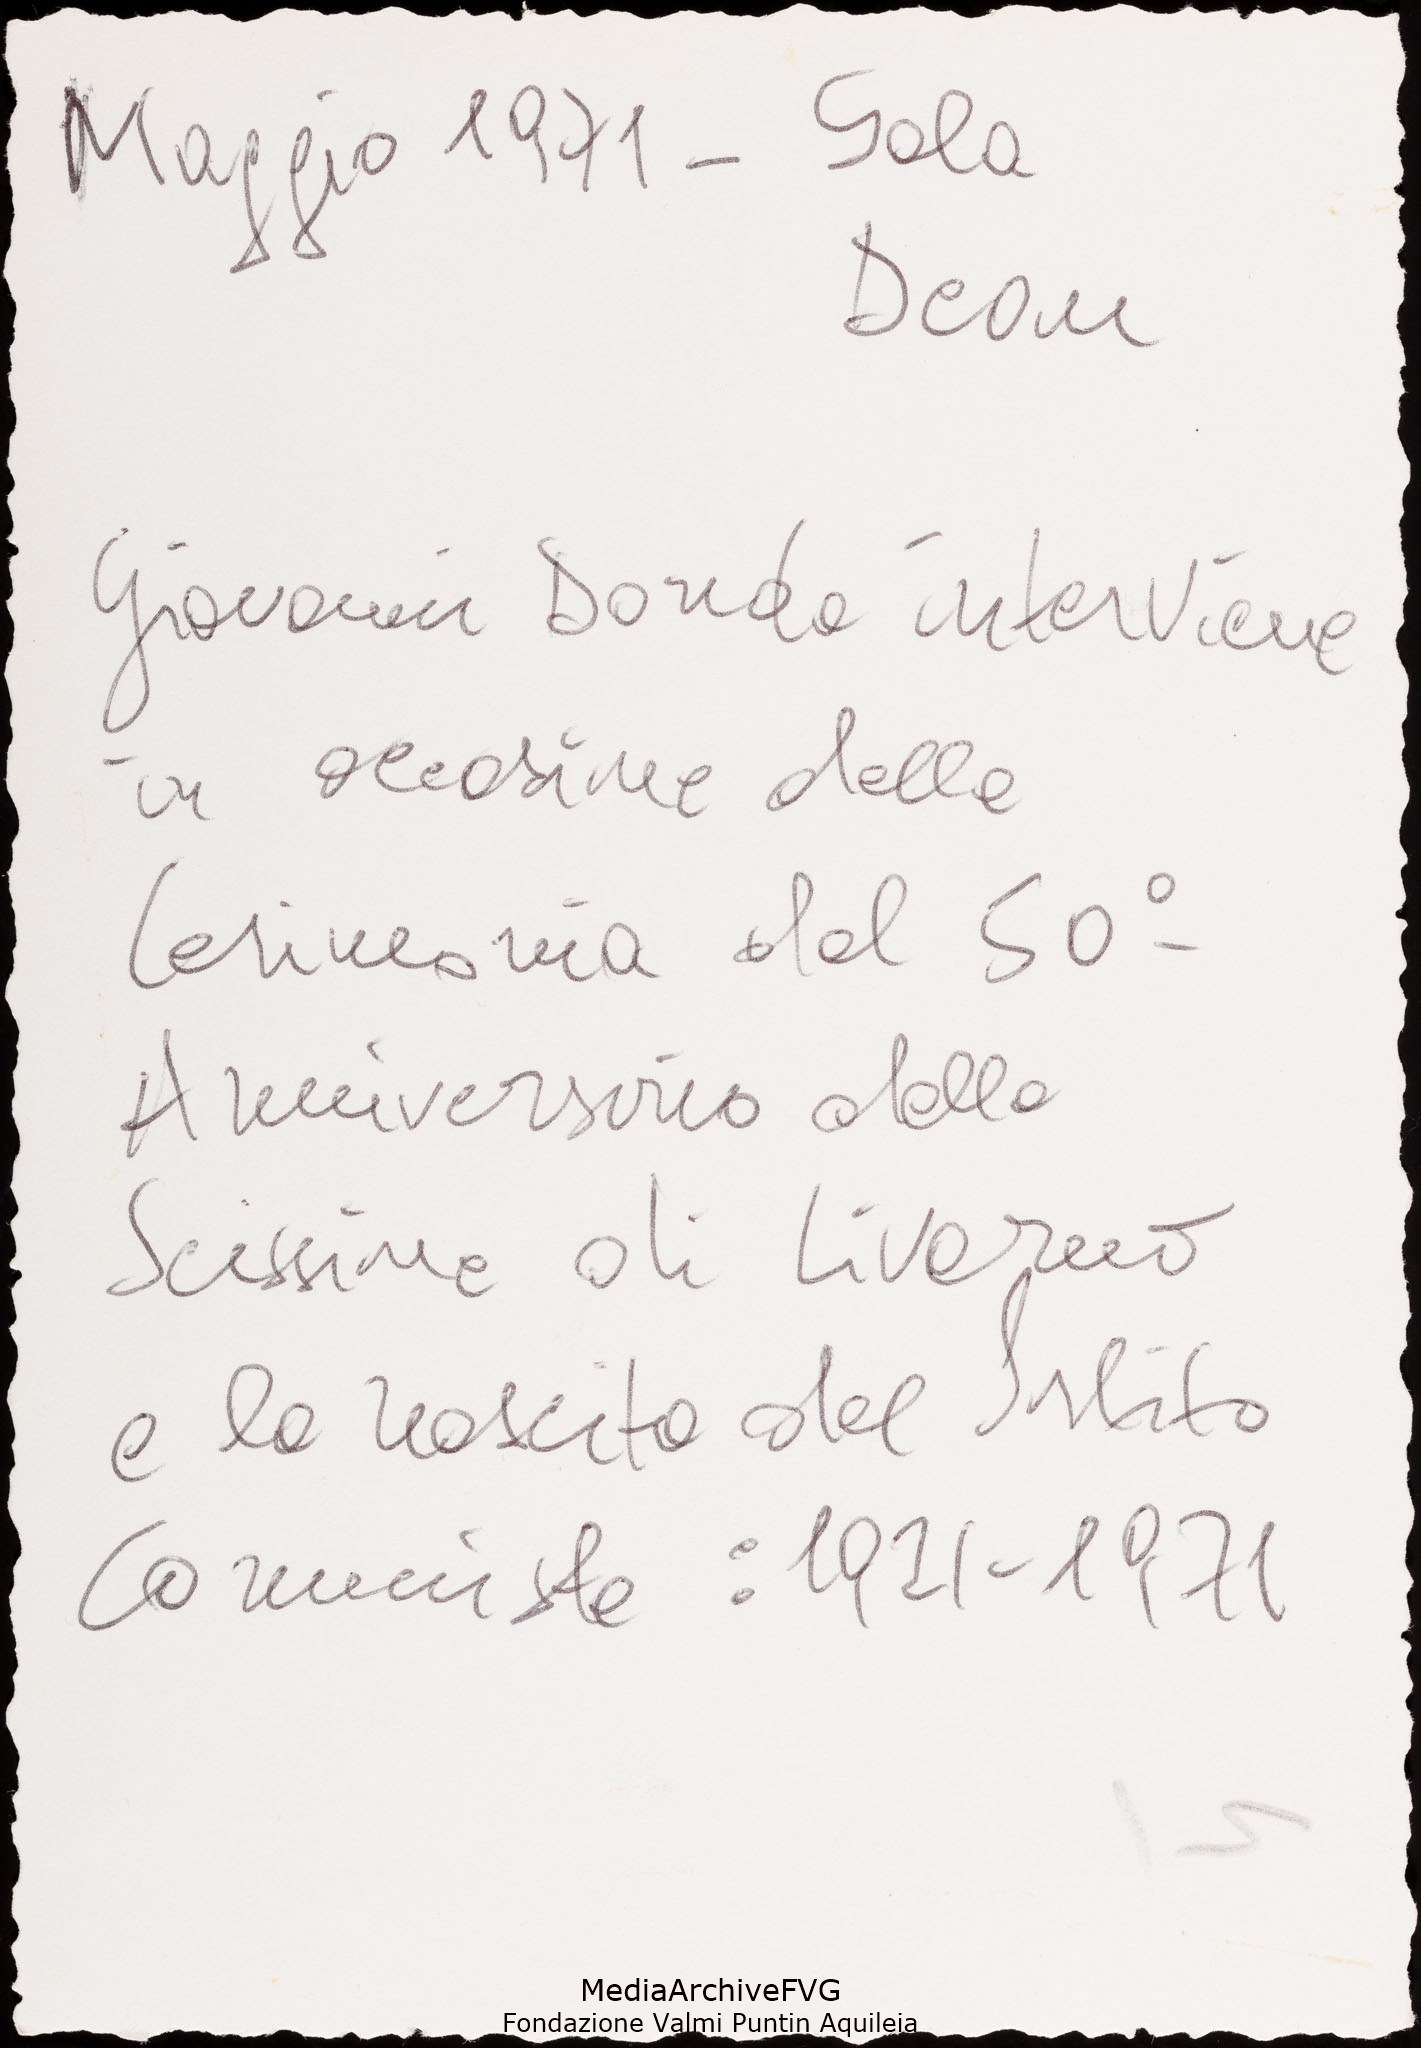 Maggio 1971 - Sala
Deon
Giovanni Donda interviene
in occasione della
Cerimonia del 50°
Anniversario della
Scissione di Livorno
e la nascita del Partito
Comunista : 1921-1971
MediaArchiveFVG
Fondazione Valmi Puntin Aquileia